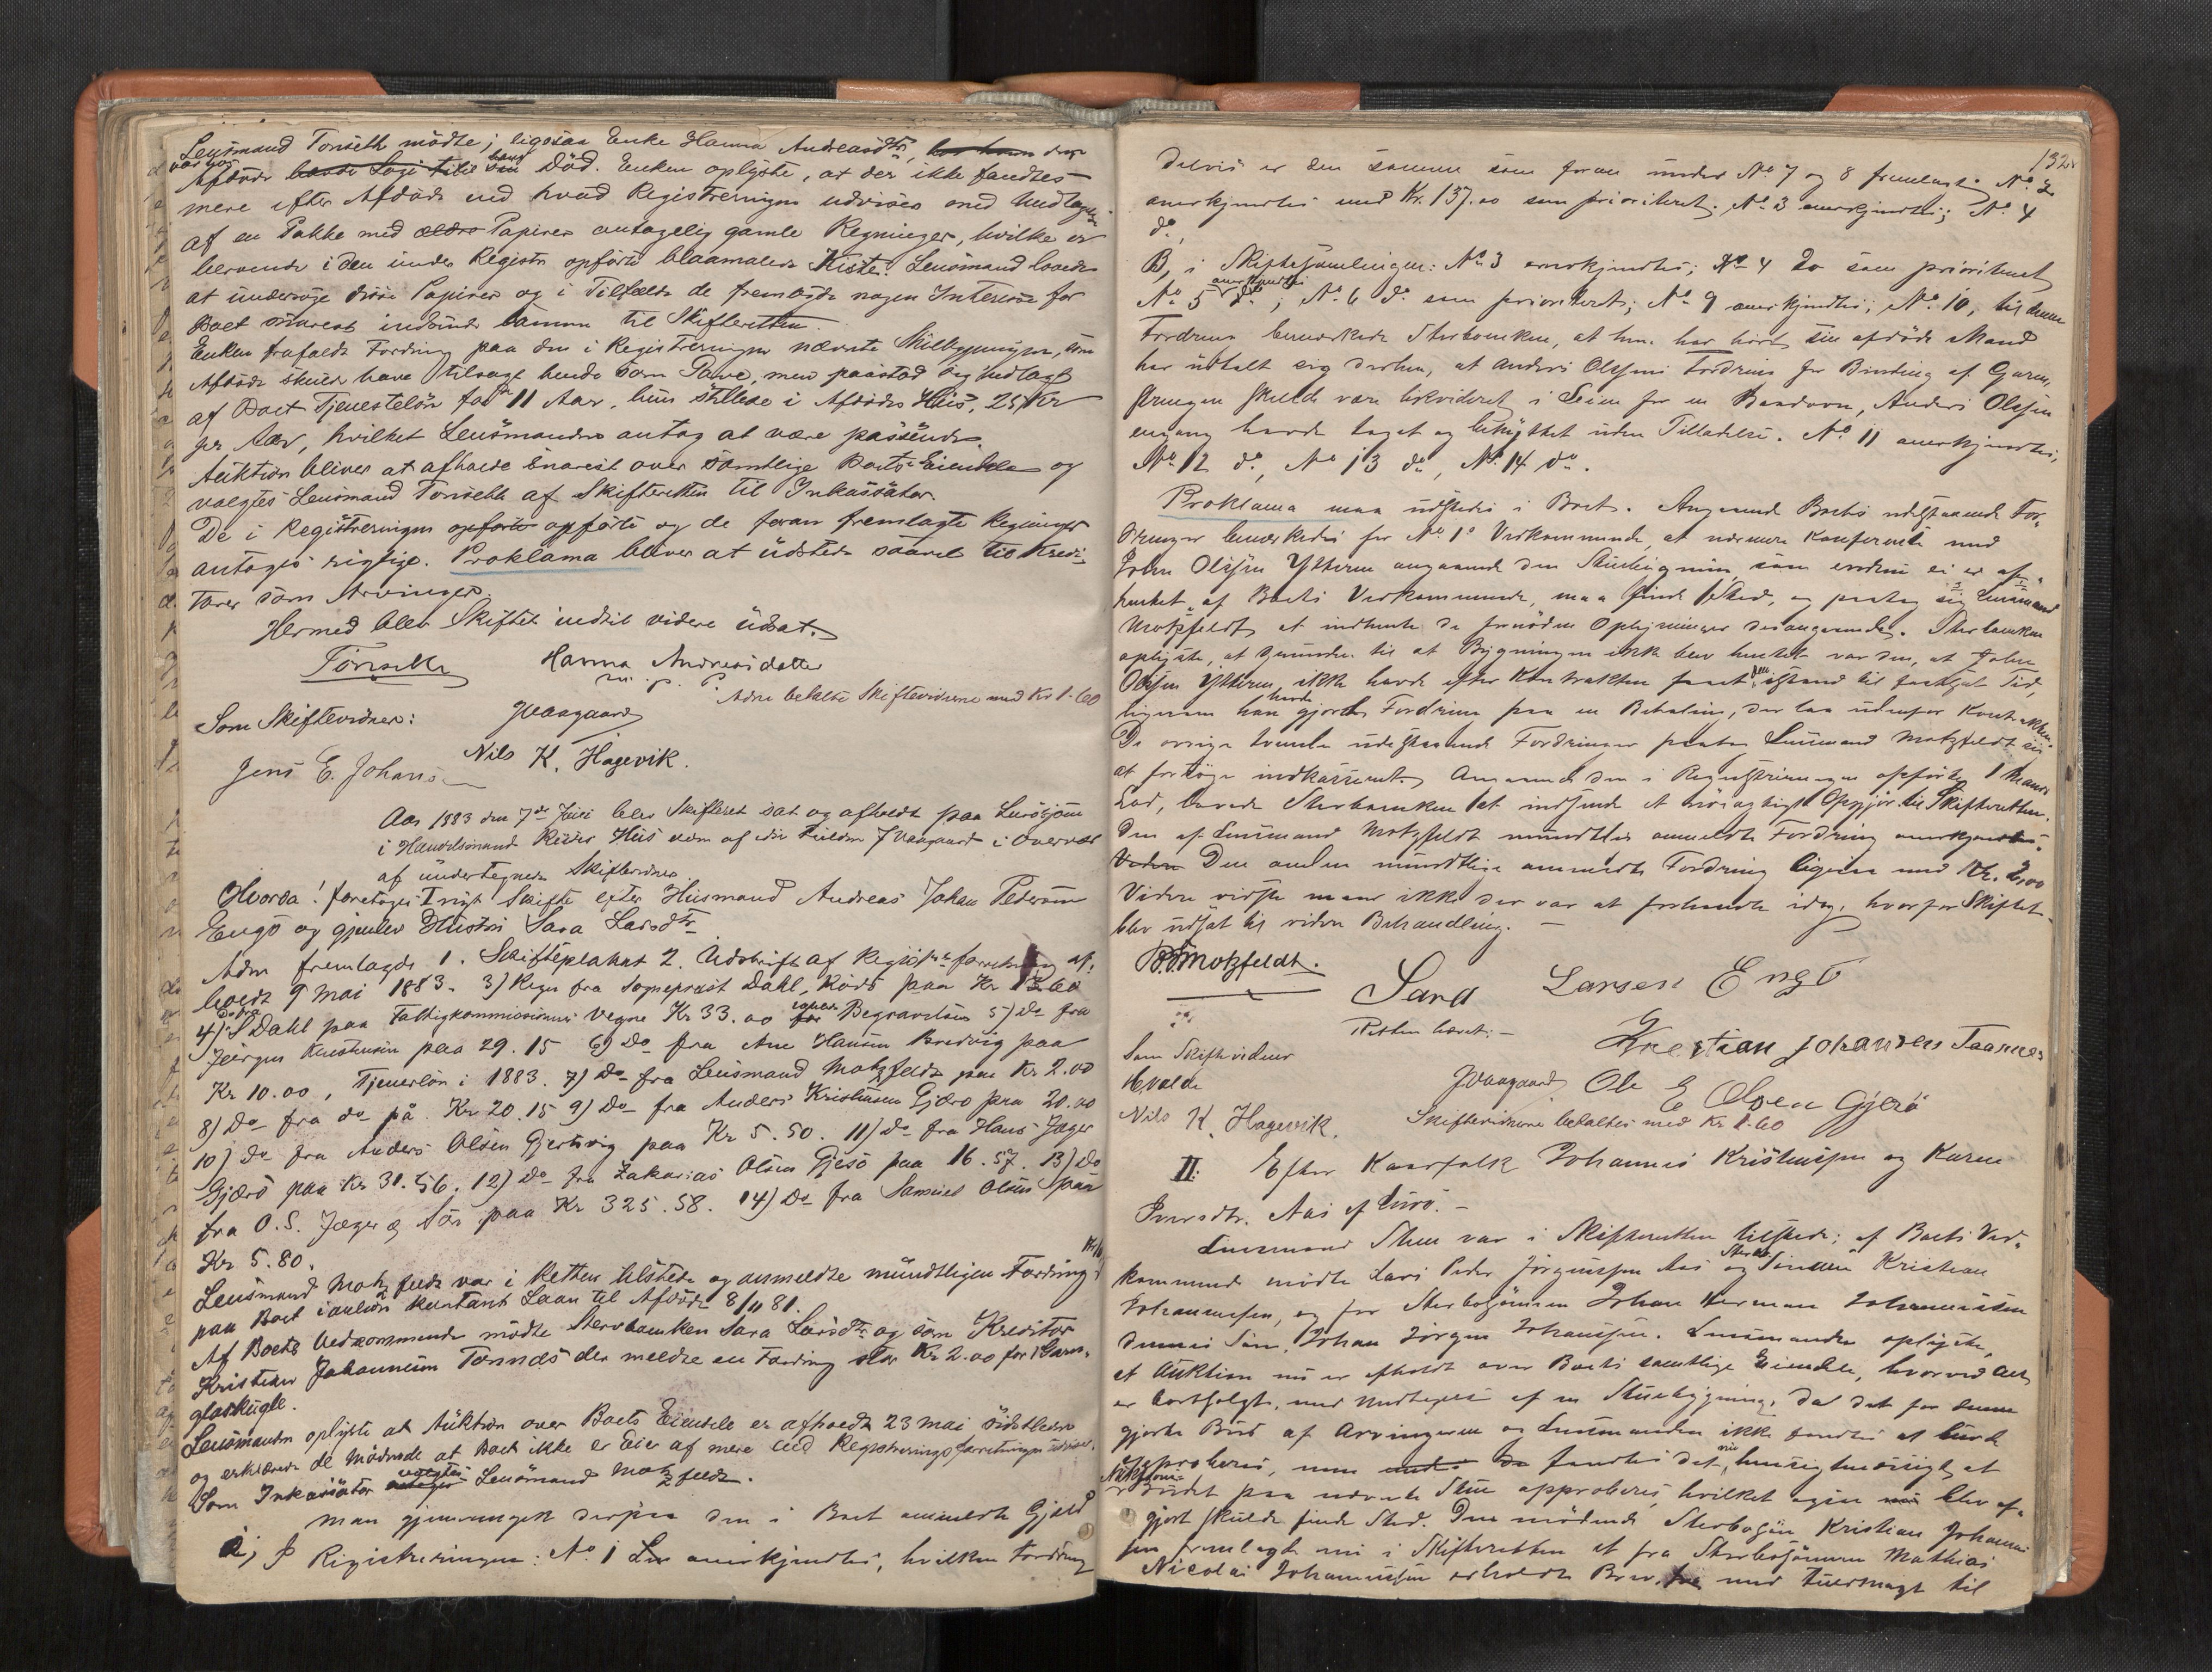 Lensmand Tønseth mødte; ligesaa Enke Hanna Andreasdtr, hos hvem den
Afdøde var hos havde Logi til sin hans Død. Enken oplyste, at der ikke fandtes
mere efter Afdøde end hvad Registreringen udviser med Undtagelse
af en Pakke med ældre Papirer antagelig gamle Regninger, hvilke er
beroende i den under Registr opførte blaamalede Kiste. Lensmand lovede
at undersøge disse Papirer og i Tilfælde de fremböde nogen Interesse for
Boet snarest indsende samme til Skifteretten.
Enken frafaldt Fordring paa den i Registreringen nævnte, som
Afdøde skulde have tilsagt hende som Gave, men paastod sig udlagt
af Boet Tjenesteløn for 11 Aar, hun stellede i Afdødes Hus, 25 Kr
per Aar, hvilket Lensmanden antog at være passende.
Auktion bliver at afholde snarest over samtlige Boets Eiendele og
valgtes Lensmand Tønseth af Skifteretten til Inkassator.
De i Registreringen opførte opførte og de foran fremlagte Regninger
antoges rigtige. Proklama bliver at udstede saavel til Kredi-
torer som Arvinger.
Hermed blev Skiftet indtil videre udsat.
Tønseth Hanna Andreasdatter
m. p. P.
Adm betalte Skiftevidnerne med Kr 1.60
Som Skiftevidner: JVaagaard
Jens E. Johans Nils K. Hagevik.
Aar 1883 den 7de Juni blev Skifteret sat og afholdt paa Lurøsjøen
i Handelsmand Hus adm af JVaagaard i Overvær
af undertegnede Skiftevidner
Hvorda! foretages I nyt Skifte efter Husmand Andreas Johan Pedersen
Engø og gjenlev Hustru Sara Larsdtr
Adm fremlagde 1. Skifteplakat 2. Udskrift af Regist forretning af-
holdt 9 Mai 1883. 3) Regn fra Sogneprest Dahl, Rödö paa Kr 13.60
4) Do fra S Dahl paa Fattigkommissionens Vegne Kr 33.00 for Begravelsen 5) Do fra
Jørgen paa 29.15 6) Do fra Ane Hansen Bredvig paa
Kr 10.00, Tjenerløn i 1883. 7) Do fra Lensmand Motzfeldt paa Kr 2.00
8) Do fra do på Kr 20.15 9) Do fra Anders Kristensen Gjærø paa 20.00
10) Do fra Anders Olsen Gjertvig paa Kr 5.50. 11) Do fra Hans Jæger
Gjærø paa Kr 31.56. 12) Do fra Zakarias Olsen Gjesø paa 16.57. 13) Do
fra O. S. Jæger & Søn paa Kr 325.58. 14) Do fra Samuel Olsen paa
Kr 5.80.
Lensmand Motzfeldt var i Retten tilstede og anmeldte mundtligen Fordring
paa Boet kontant Laan til Afdøde 8/11 81.
Af Boets Vedkommende mødte Stervboenken Sara Larsdtr og som Kreditor
Kristian Johannesen Tonnes der meldte en Fordring stor Kr 2.00 for 1 Garn-
glaskugle.
Lensmanden oplyste at Auktion over Boets Eiendele er afholdt 23 Mai sidstleden
og erklærede de Mødende at Boet ikke er Eier af mere end Registreringsforretningen udviser.
Som Inkassator antoges valgtes Lensmand Motzfeldt.
Man gjennemgik derpaa den i Boet anmeldte Gjæld
A, I Registreringen: No 1 anerkjendtes, hvilken Fordring
132
delvis er den samme som foran under No 7 og 8 fremlagte; No 2
anerkjendtes med Kr. 137.00 som prioriteret; No 3 anerkjendtes; No 4
do,
B, i Skiftesamlingen: No 3 anerkjendtes; No 4 do som prioriteret
No 5 anerkjendtes do; No 6 do som prioriteret; No 9 anerkjendtes; No 10, til denne
Fordring bemærkede Sterboenken, at hun har hørt sin afdøde Mand
har udtalt sig derhen, at Anders Olsens Fordring for Binding af Garn,
skulde være likvideret i for en, Anders Olsen
engang havde taget og benyttet uden Tilladelse. No 11 anerkjendtes,
No 12 do, No 13 do, No 14 do.
Proklama maa udstedes i Boet. Angaaende Boets udestaaende For-
dringer bemærkedes for No 1s Vedkommende, at nærmere Konference med
John Olsen Ytteren angaaende den Stuebygning, som endnu ei er af-
hentet af Boets Vedkommende, maa finde Sted, og paatog sig Lensmand
Motzfeldt at indhente de fornødne Oplysninger desangaaende. Sterboenken
oplyste, at Grunden til at Bygningen ikke blev hentet var den, at John
Olsen Ytteren ikke havde efter Kontrakten faaet den istand til fastsat Tid,
ligesom han havde gjort Fordring paa en Betaling, der laa udenfor Kontrakten.
De øvrige tvende udestaaende Fordringer paatog Lensmand Motzfeldt sig
at forsøge indkasseret. Angaaende den i Registreringen opførte 1 Mands
Lod, lovede Sterboenken at indsende et nøiagtigt Opgjør til Skifteretten.
Den af Lensmand Motzfeldt mundtlig anmeldte Fordring anerkjendtes.
Den anden mundtlige anmeldte Fordring ligesaa med Kr. 2,00
Videre vidste man ikke der var at forhandle idag, hvorfor Skiftet
blev udsat til videre Behandling. —
Motzfeldt. Sara Larsen Engö
Retten hævet. — Krestian Johansen Taannes
Som Skiftevidner
Hvalde JVaagaard Ole E Olsen Gjerö
Nils K. Hagevik. Skiftevidnerne betaltes med Kr 1.60
II. Efter Kaarfolk Johannes Kristensen og Karen
Iversdtr. Aas af Lurö. —
Lensmand Steen var i Skifteretten tilstede; af Boets Ved-
kommende mødte Lars Peder Jørgensen Aas og Sterbosønnen Kristian
Johannesen, og for Sterbosønnen Johan Herman Johannesen
dennes Søn, Johan Jørgen Johansen. Lensmanden oplyste,
at Auktion nu er afholdt over Boets samtlige Eiendele, hvorved Alt
er bortsolgt, med Undtagelse af en Stuebygning, da det for denne
gjorte Bud af Arvingerne og Lensmanden ikke fandtes at burde
approberes, men fandtes det nu hensigtsmæssigt, at
Auktions Budet paa nævnte Stue approberes, hvilket ogsaa blev af-
gjort skulde finde Sted. Den mødende Sterbosøn Kristian Johanne-
sen fremlagde nu i Skifteretten et fra Sterbosønnen Mathias
Nicolai Johannesen erholdt Brev med Fuldmagt til